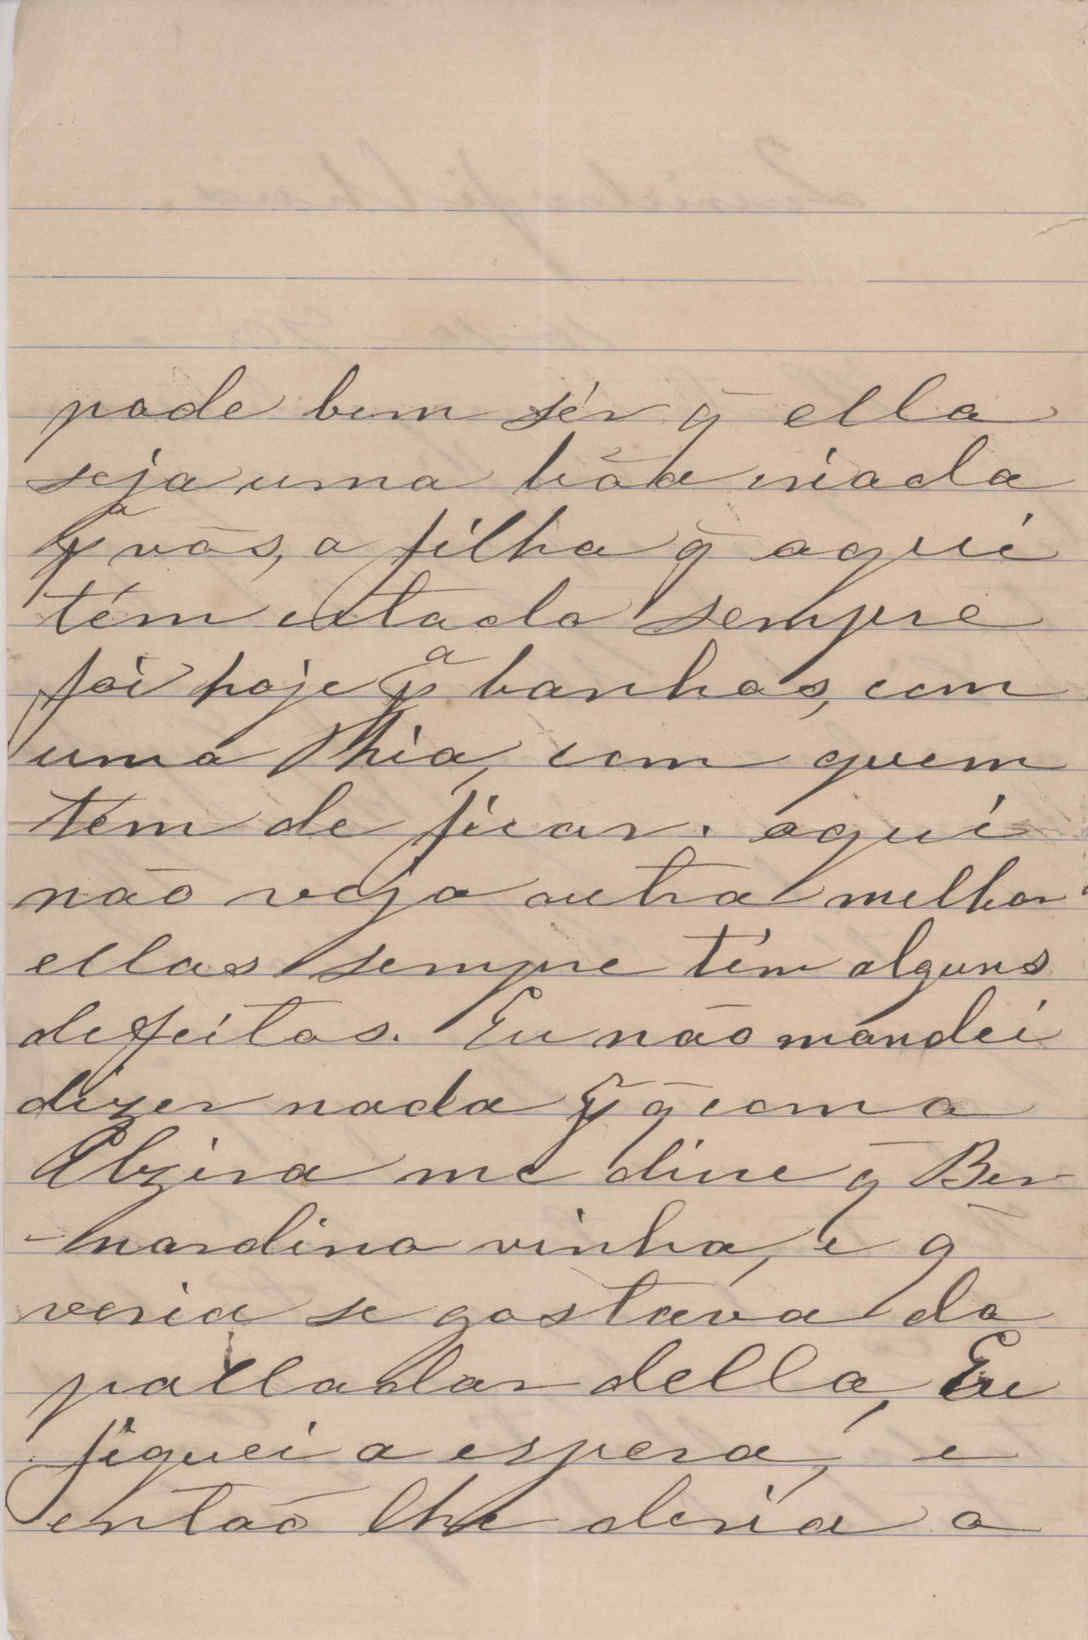 pode bem sér q̃ ella
seja uma bôa criada
pª vós, a filha q̃ aqui
tém estado sempre
foi hoje pª banhos, com
uma Thia, com quem
tém de ficar. aqui
não vejo outra melhor
ellas sempre tém alguns
defeitos. Eu não mandei
dizer nada p q̃ como a
Alzira me disse q̃ Ber-
-nardino vinha, e q̃
veria se gostava do
palladar della, Eu
fiquei a espera, e
então lhe diria o